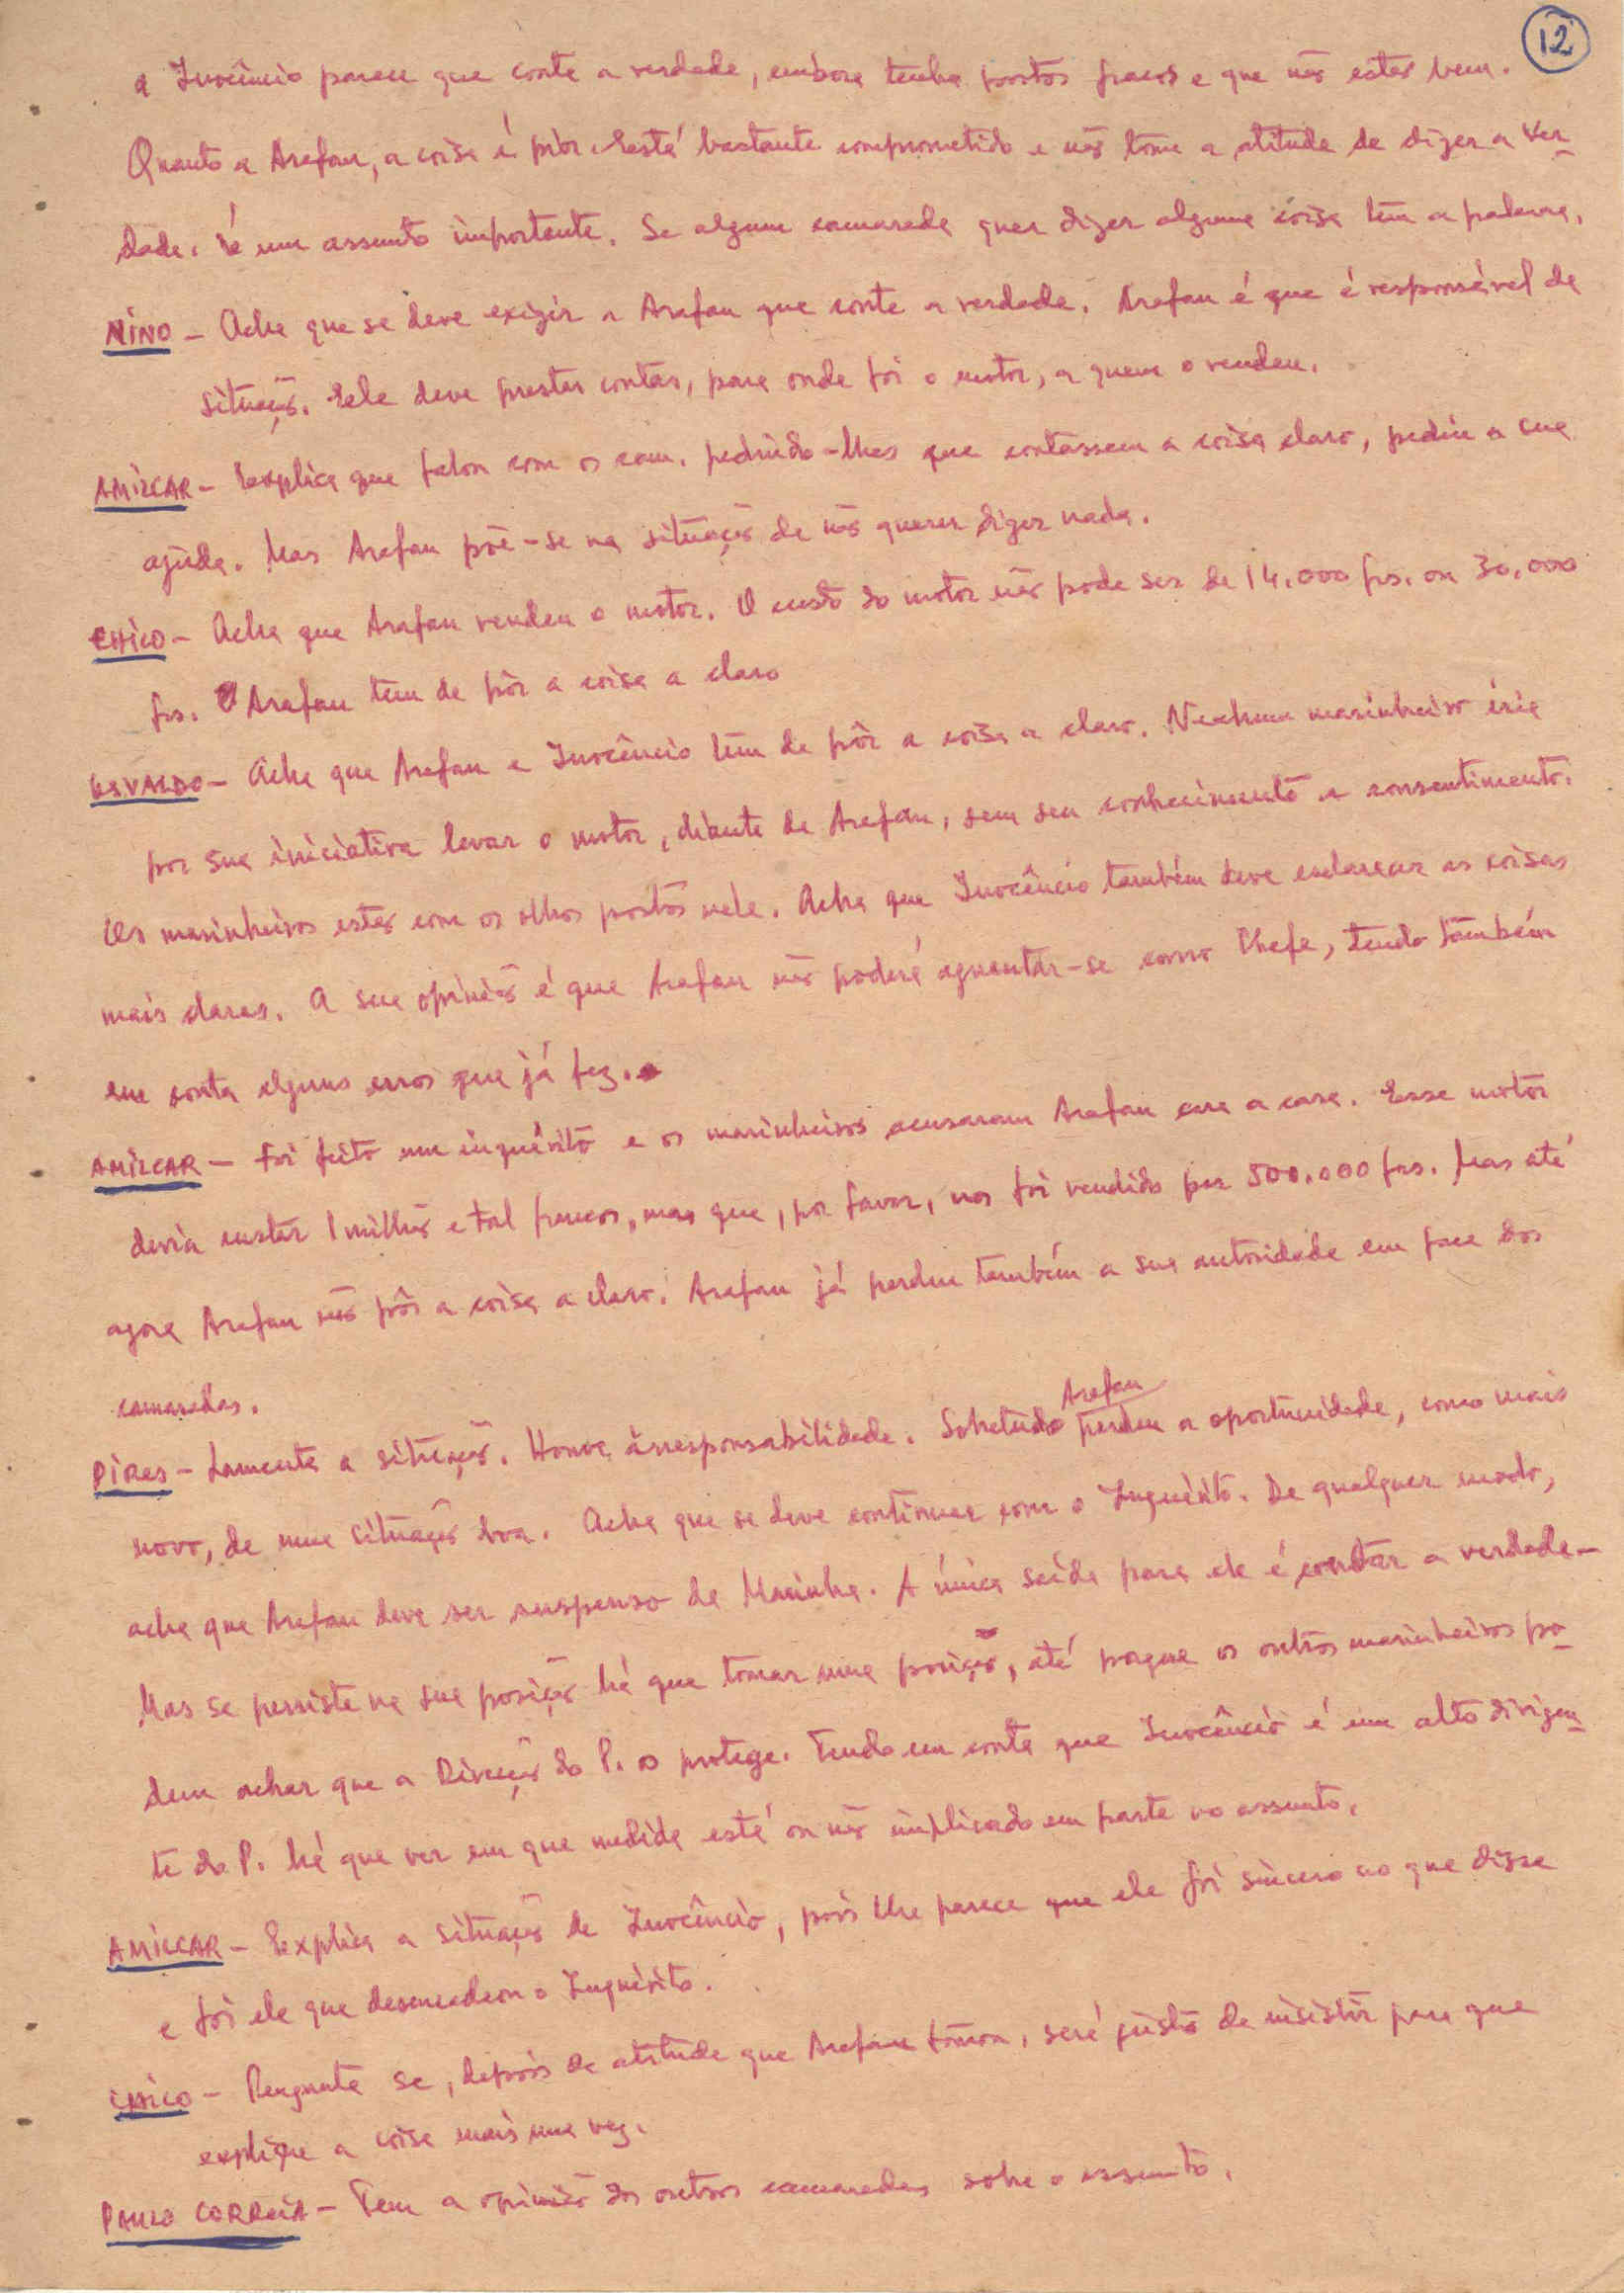 12
a Inocêncio parece que conta a verdade, embora tenha pontos fracos e que não estão bem.
Quanto a Arafan, a coisa é piór. Está bastante comprometido e não toma a atitude de dizer a ver-
dade. É um assunto importante. Se algum camarada quer dizer alguma coisa tem a palavra.
NINO - Acha que se deve exigir a Arafan que conte a verdade. Arafan é que é responsável da
situação. Ele deve prestar contas, para onde foi o motor, a quem o vendeu.
AMILCAR - Explica que falou com os cam. pedindo-lhes que contassem a coisa claro, pediu a sua
ajuda. Mas Arafan põe-se na situação de não querer dizer nada.
CHICO - Acha que Arafan vendeu o motor. O custo do motor não pode ser de 14.000 frs. ou 30.000
frs. Arafan tem de pôr a coisa a claro
OSVALDO - Acha que Arafan e Inocêncio têm de pôr a coisa a claro. Nenhum marinheiro iria
por sua iniciativa levar o motor, diante de Arafan, sem seu conhecimento e consentimento.
Os marinheiros estão com os olhos postos nele. Acha que Inocêncio também deve esclarecer as coisas
mais claras. A sua opinião é que Arafan não poderá aguentar-se como Chefe, tendo também
em conta alguns erros que já fez.
AMILCAR - Foi feito um inquérito e os marinheiros acusaram Arafan cara a cara. Esse motor
devia custar 1 milhão e tal francos, mas que, por favor, nos foi vendido por 500.000 frs. Mas até
agora Arafan não pôs a coisa a claro. Arafan já perdeu também a sua autoridade em face dos
camaradas.
PIRES - Lamenta a situação. Houve irresponsabilidade. Sobretudo Arafan perdeu a oportunidade, como mais
novo, de uma situação boa. Acha que se deve continuar com o Inquérito. De qualquer modo,
acha que Arafan deve ser suspenso da Marinha. A única saída para ele é contar a verdade -
Mas se persiste na sua posição há que tomar uma posição, até porque os outros marinheiros po-
dem achar que a Direcção do P. os protege. Tendo em conta que Inocêncio é um alto dirigen-
te do P. há que ver em que medida está ou não implicado em parte no assunto.
AMILCAR - Explica a situação de Inocêncio, pois lhe parece que ele foi sincero no que disse
e foi ele que desencadeou o Inquérito.
CHICO - Pergunta se, depois da atitude que Arafan tomou, será justo de insistir para que
explique a coisa mais uma vez.
PAULO CORREIA - Tem a opinião dos outros camaradas sobre o assunto.